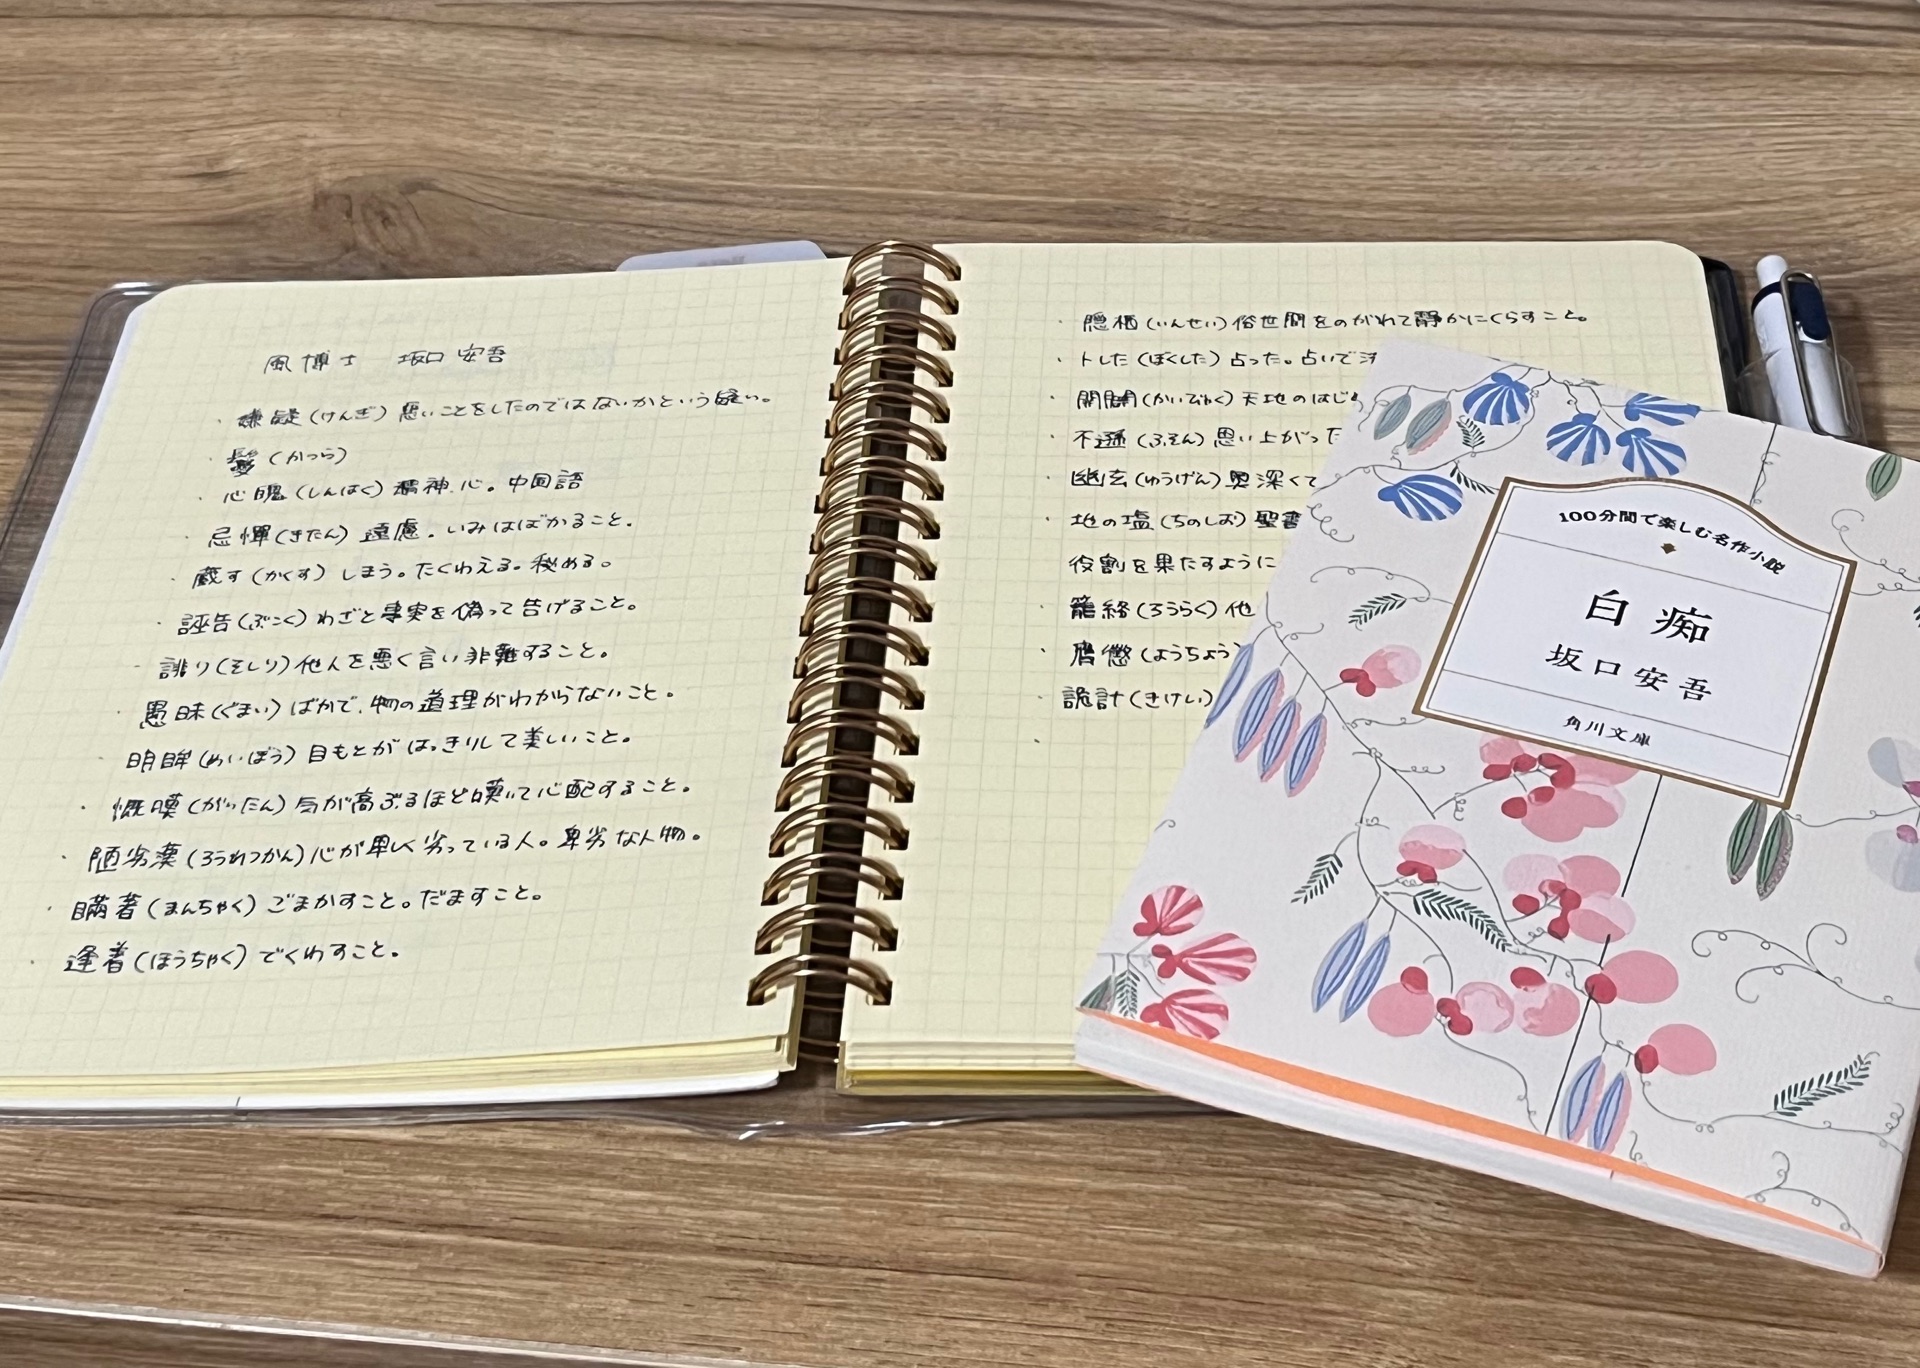 風博士 坂口安吾
・嫌疑(けんぎ)悪いことをしたのではないかという疑い。
・鬘(かつら)
・心魄(しんぱく)精神、心。中国語
・忌憚(きたん)遠慮。いみはばかること。
・蔵す(かくす)しまう。たくわえる。秘める。
・誣告(ぶこく)わざと事実を偽って告げること。
・誹り(そしり)他人を悪く言い非難すること。
・愚昧(ぐまい)ばかで、物の道理がわからないこと。
・明眸(めいぼう)目もとがはっきりして美しいこと。
・慨嘆(がいたん)気が高ぶるほど嘆いて心配すること。
・陋劣漢(ろうれつかん)心が卑しく劣っている人。卑劣な人物。
・瞞着(まんちゃく)ごまかすこと。だますこと。
逢着(ほうちゃく)でくわすこと。
・隠栖(いんせい)俗世間をのがれて静かにくらすこと。
・卜した(ぼくした)占った。占いで
・開闢(かいびゃく)天地のはじ
・不遜(ふそん)思い上がった
・幽玄(ゆうげん)奥深くて
・地の塩(ちのしお)聖書
役割を果たすように
・籠絡(ろうらく)他
・膺懲(ようちょう)
・詭計(きけい)
・
100分間で楽しむ名作小説
白痴
坂口安吾
角川文庫